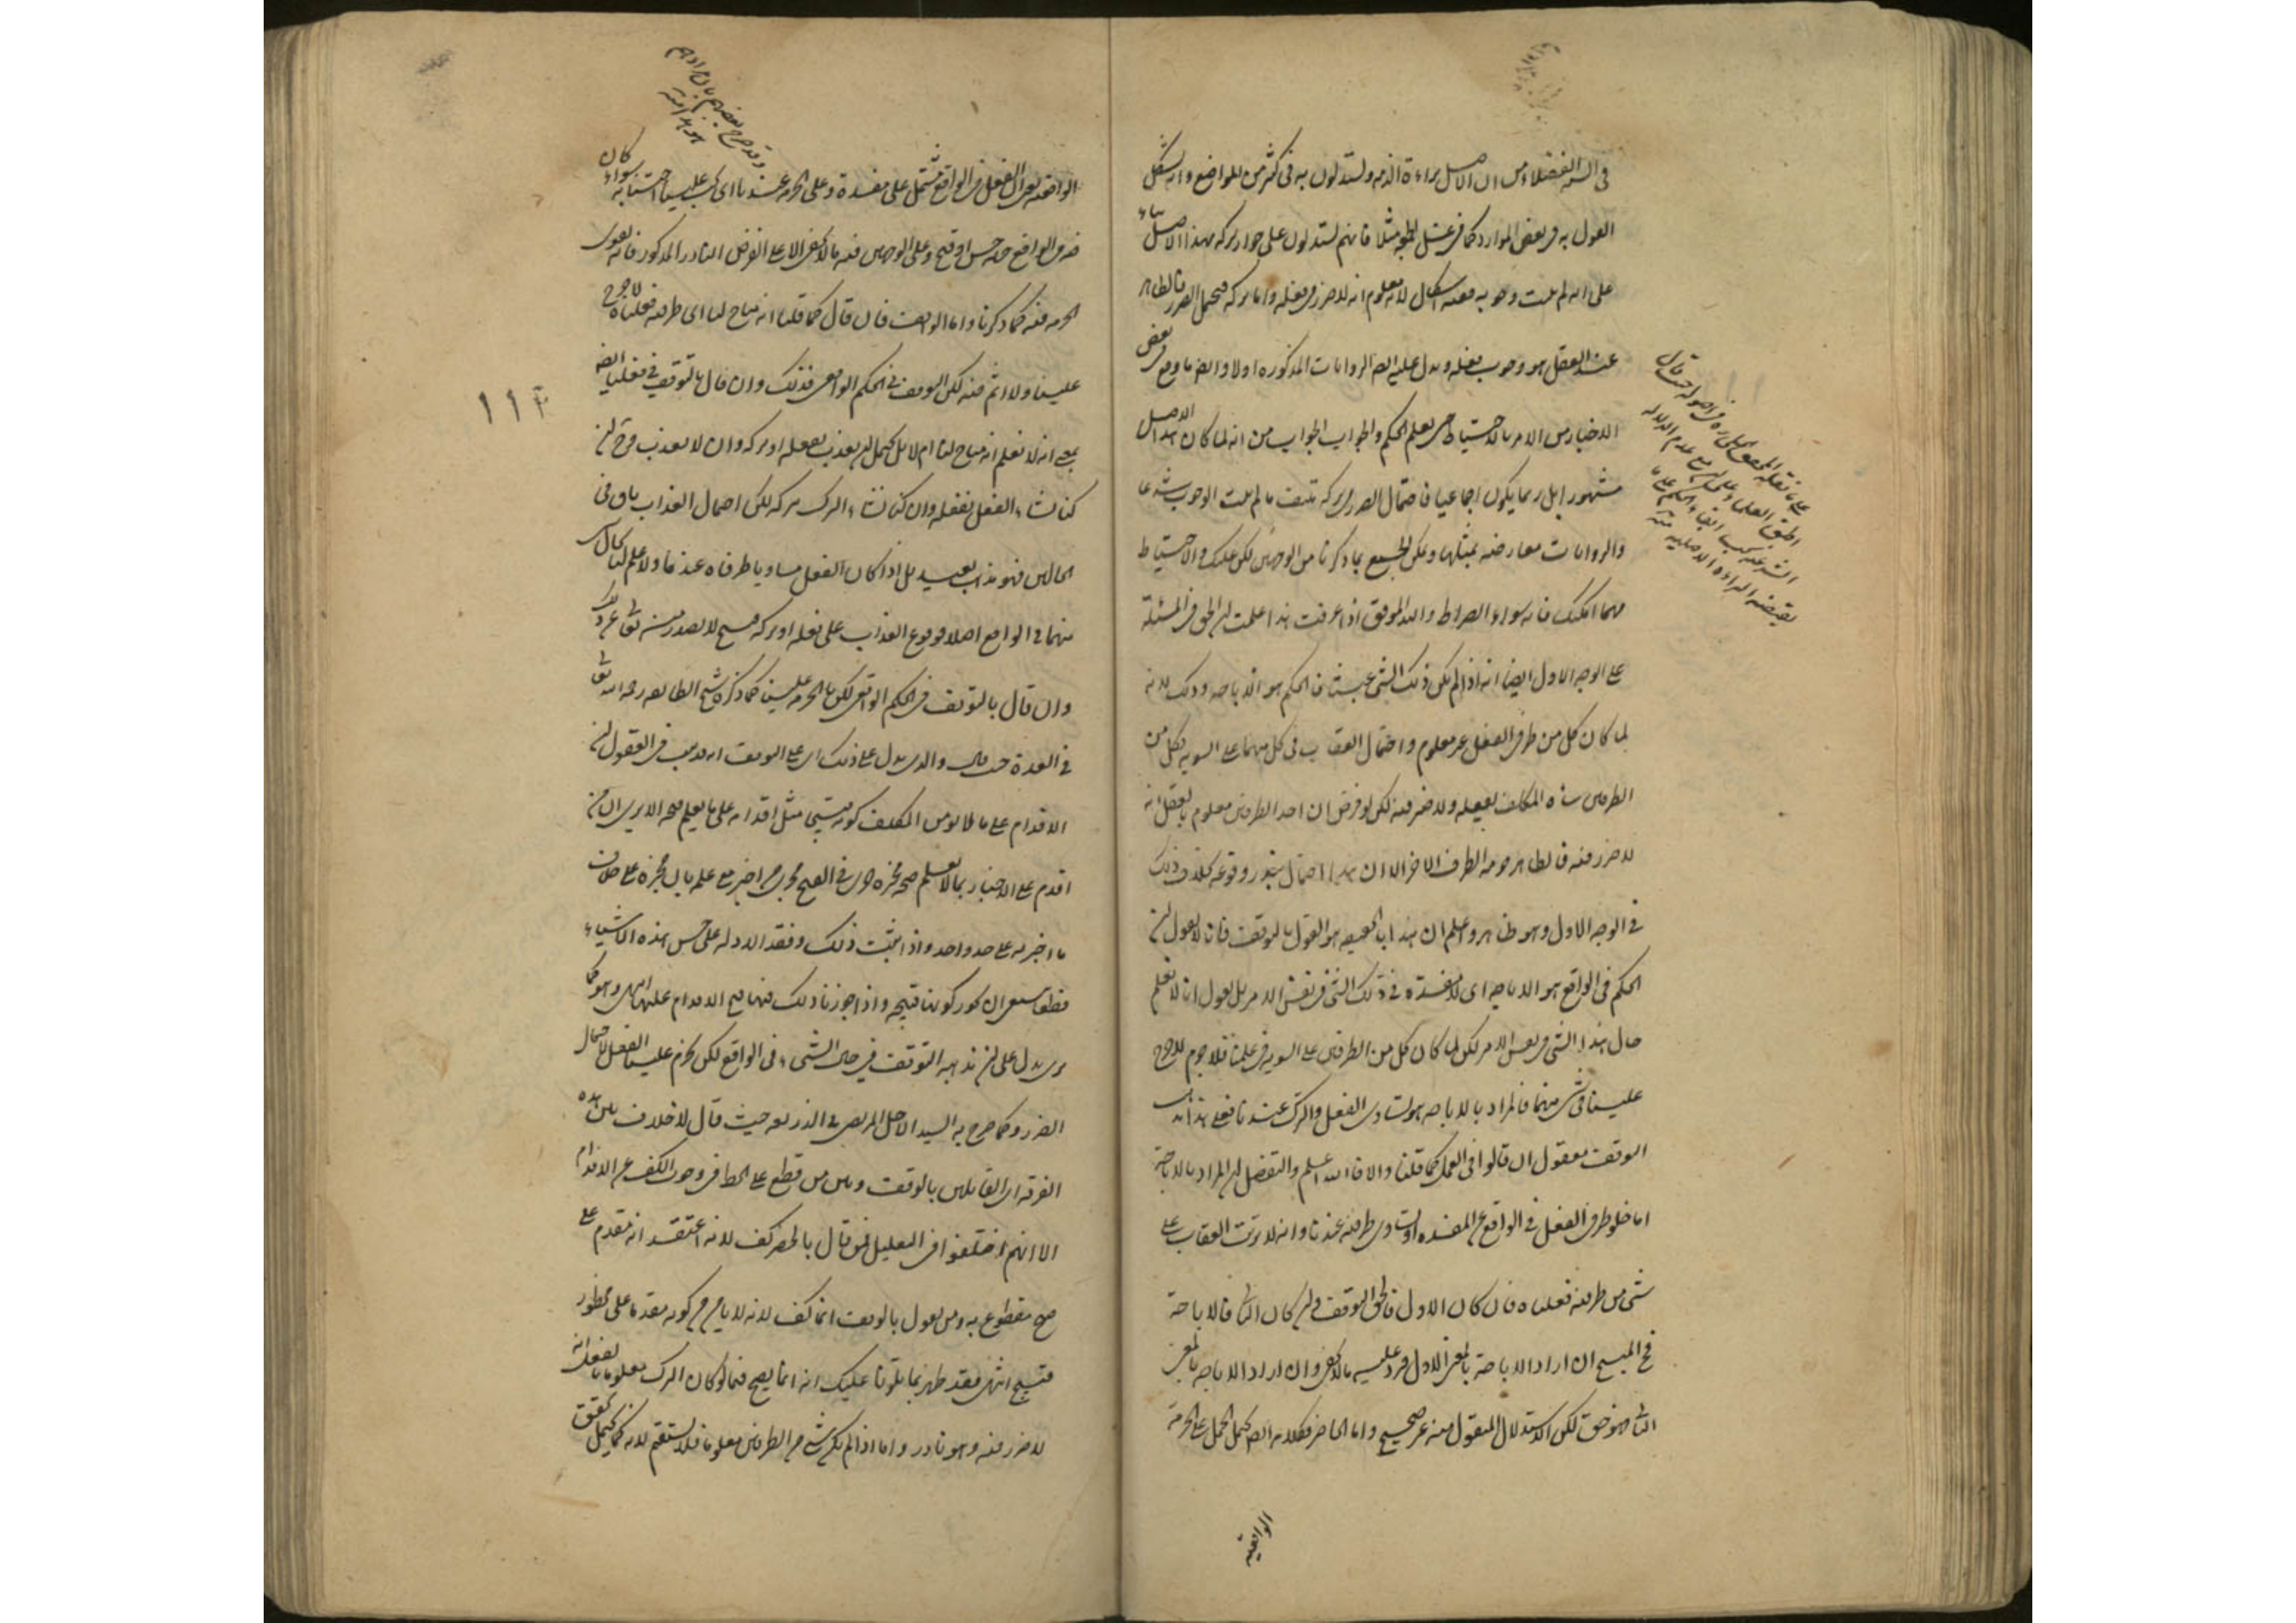 في السنة الفضلاء من ان الاصل براءة الذمة ويستدلون به في كثير من المواضع وانه يشكل
القول به في بعض الموارد كما في غسل الجمعة مثلا فانهم يستدلون على جواز تركه بهذا الاصل بناء
على انه لم يثبت وجوبه ففيه اشكال لانه معلوم انه لا ضرر في فعله واما تركه فيحتمل الضرر فالظاهر
عند العقل هو وجوب فعله ويدل عليه ايضا الروايات المذكورة اولا وايضا ما وقع في بعض
الاخبار من الامر بالاحتياط حتى يعلم الحكم والجواب الجواب من انه لما كان هذا الاصل
مشهورا بل ربما يكون اجماعيا فاحتمال الضرر في تركه منتف ما لم يثبت الوجوب شرعا
والروايات معارضة بمثلها ويمكن الجمع بما ذكرنا من الوجهين لكن عليك بالاحتياط
مهما امكنك فانه سواء الصراط والله الموفق اذا عرفت هذا علمت ان الحق في المسئلة
على الوجه الاول ايضا انه اذا لم يكن ذلك الشيء عبثا فالحكم هو الاباحة وذلك لانه
لما كان كل من طرفي الفعل غير معلوم واحتمال العقاب في كل منهما على السوية فكل من
الطرفين شاء المكلف يفعله ولا ضرر فيه لكن لو فرض ان احد الطرفين معلوم بالعقل انه
لا ضرر فيه فالظاهر حرمة الطرف الاخر الا ان هذا احتمال يندر وقوعه بخلاف ذلك
في الوجه الاول وهو ظاهر واعلم ان هذا في الحقيقة هو القول بالتوقف فانا لا نقول ان
الحكم في الواقع هو الاباحة اي لا مفسدة في ذلك الشيء في نفس الامر بل نقول انا لا نعلم
حال هذا الشيء في نفس الامر لكن لما كان كل من الطرفين على السوية في علمنا فلا جرم لا حرج
علينا في شيء منهما فالمراد بالاباحة هو تساوي الفعل والترك عندنا فعلى هذا
التوقف معقول ان قالوا في العمل كما قلنا والا فالله اعلم والتفصيل ان المراد بالاباحة
اما خلو طرفي الفعل في الواقع عن المفسدة او تساوي طرفيه عندنا وانه لا ترتب العقاب على
شيء من طرفيه فعلناه فان كان الاول فالحق التوقف وان كان الثاني فالاباحة
فح المبيح ان اراد الاباحة بالمعنى الاول فيرد عليه ما لا يخفى وان اراد الاباحة بالمعنى
الثاني فهو حق لكن الاستدلال المنقول منه غير صحيح واما الحاضر فكلامه ايضا يحتمل الحمل على الحرمة
الواقعية
على ما نقله المحقق في اصوله حيث قال
اطبق العلماء على ان مع عدم الدلالة
الشرعية يجب ابقاء الحكم على ما
يقتضيه البراءة الاصلية منه
الواقعية بمعنى ان الفعل في الواقع مشتمل على مفسدة وعلى الحرمة عندنا اي يجب علينا اجتنابه سواء كان
فيه في الواقع جهة حسن او قبح وعلى الوجهين فيه ما لا يخفى الا على الفرض النادر المذكور فانه نقول
الحرمة فيه كما ذكرنا واما الواقف فان قال كما قلنا انه مباح لنا اي طرفيه فعلناه لا حرج
علينا ولا اثم فيه لكن التوقف في الحكم الواقعي فذلك وان قال بالتوقف في فعلنا ايضا
بمعنى انه لا نعلم انه مباح لنا ام لا بل يحتمل ان يعذب بفعله او تركه وان لا يعذب فح ان
كنا نشاء الفعل نفعله وان كنا نشاء الترك نتركه لكن احتمال العذاب باق في
الحالين فهو مذهب بعيد بل اذا كان الفعل متساويا طرفاه عندنا ولا علم لنا بحال
منهما في الواقع اصلا فوقوع العذاب على فعله او تركه قبيح لا يصدر منه تعالى عن ذلك
وان قال بالتوقف في الحكم الواقعي لكن بالحرمة علينا كما ذكره شيخ الطائفة رحمه الله تعالى
في العدة حيث قال والذي يدل على ذلك اي على التوقف انه قد ثبت في العقول ان
الاقدام على ما لا يؤمن المكلف كونه قبيحا مثل اقدامه على ما يعلم قبحه الا ترى ان من
اقدم على الاخبار بما لا يعلم صحة مخبره جرى في القبح مجرى من اخبر مع علمه بان مخبره على خلاف
ما اخبر به على حد واحد واذا ثبت ذلك وفقد الادلة على حسن هذه الاشياء
قطعا ينبغي ان نجوز كونها قبيحة واذا جوزنا ذلك فيها قبح الاقدام عليها انتهى وهو كما
ترى يدل على ان مذهبه التوقف في حال الشيء في الواقع لكن يحرم علينا الفعل لاحتمال
الضرر وكما صرح به السيد الاجل المرتضى في الذريعة حيث قال لا خلاف بين هذه
الفرقة اي القائلين بالوقف وبين من قطع على الحظر في وجوب الكف عن الاقدام
الا انهم اختلفوا في التعليل فمن قال بالحظر كف لانه اعتقد انه مقدم على
قبح مقطوع به ومن يقول بالوقف انما كف لانه لا يأمن من كونه مقدما على محظور
قبيح انتهى فقد ظهر بما تلونا عليك انه انما يصح فيما لو كان الترك معلوما بالعقل انه
لا ضرر فيه وهو نادر واما اذا لم يكن شيء من الطرفين معلوما فلا يستقيم لانه كما يحتمل تحقق
وقد صرح بعضهم بان مرادهم
هو هذا منه
١١٢